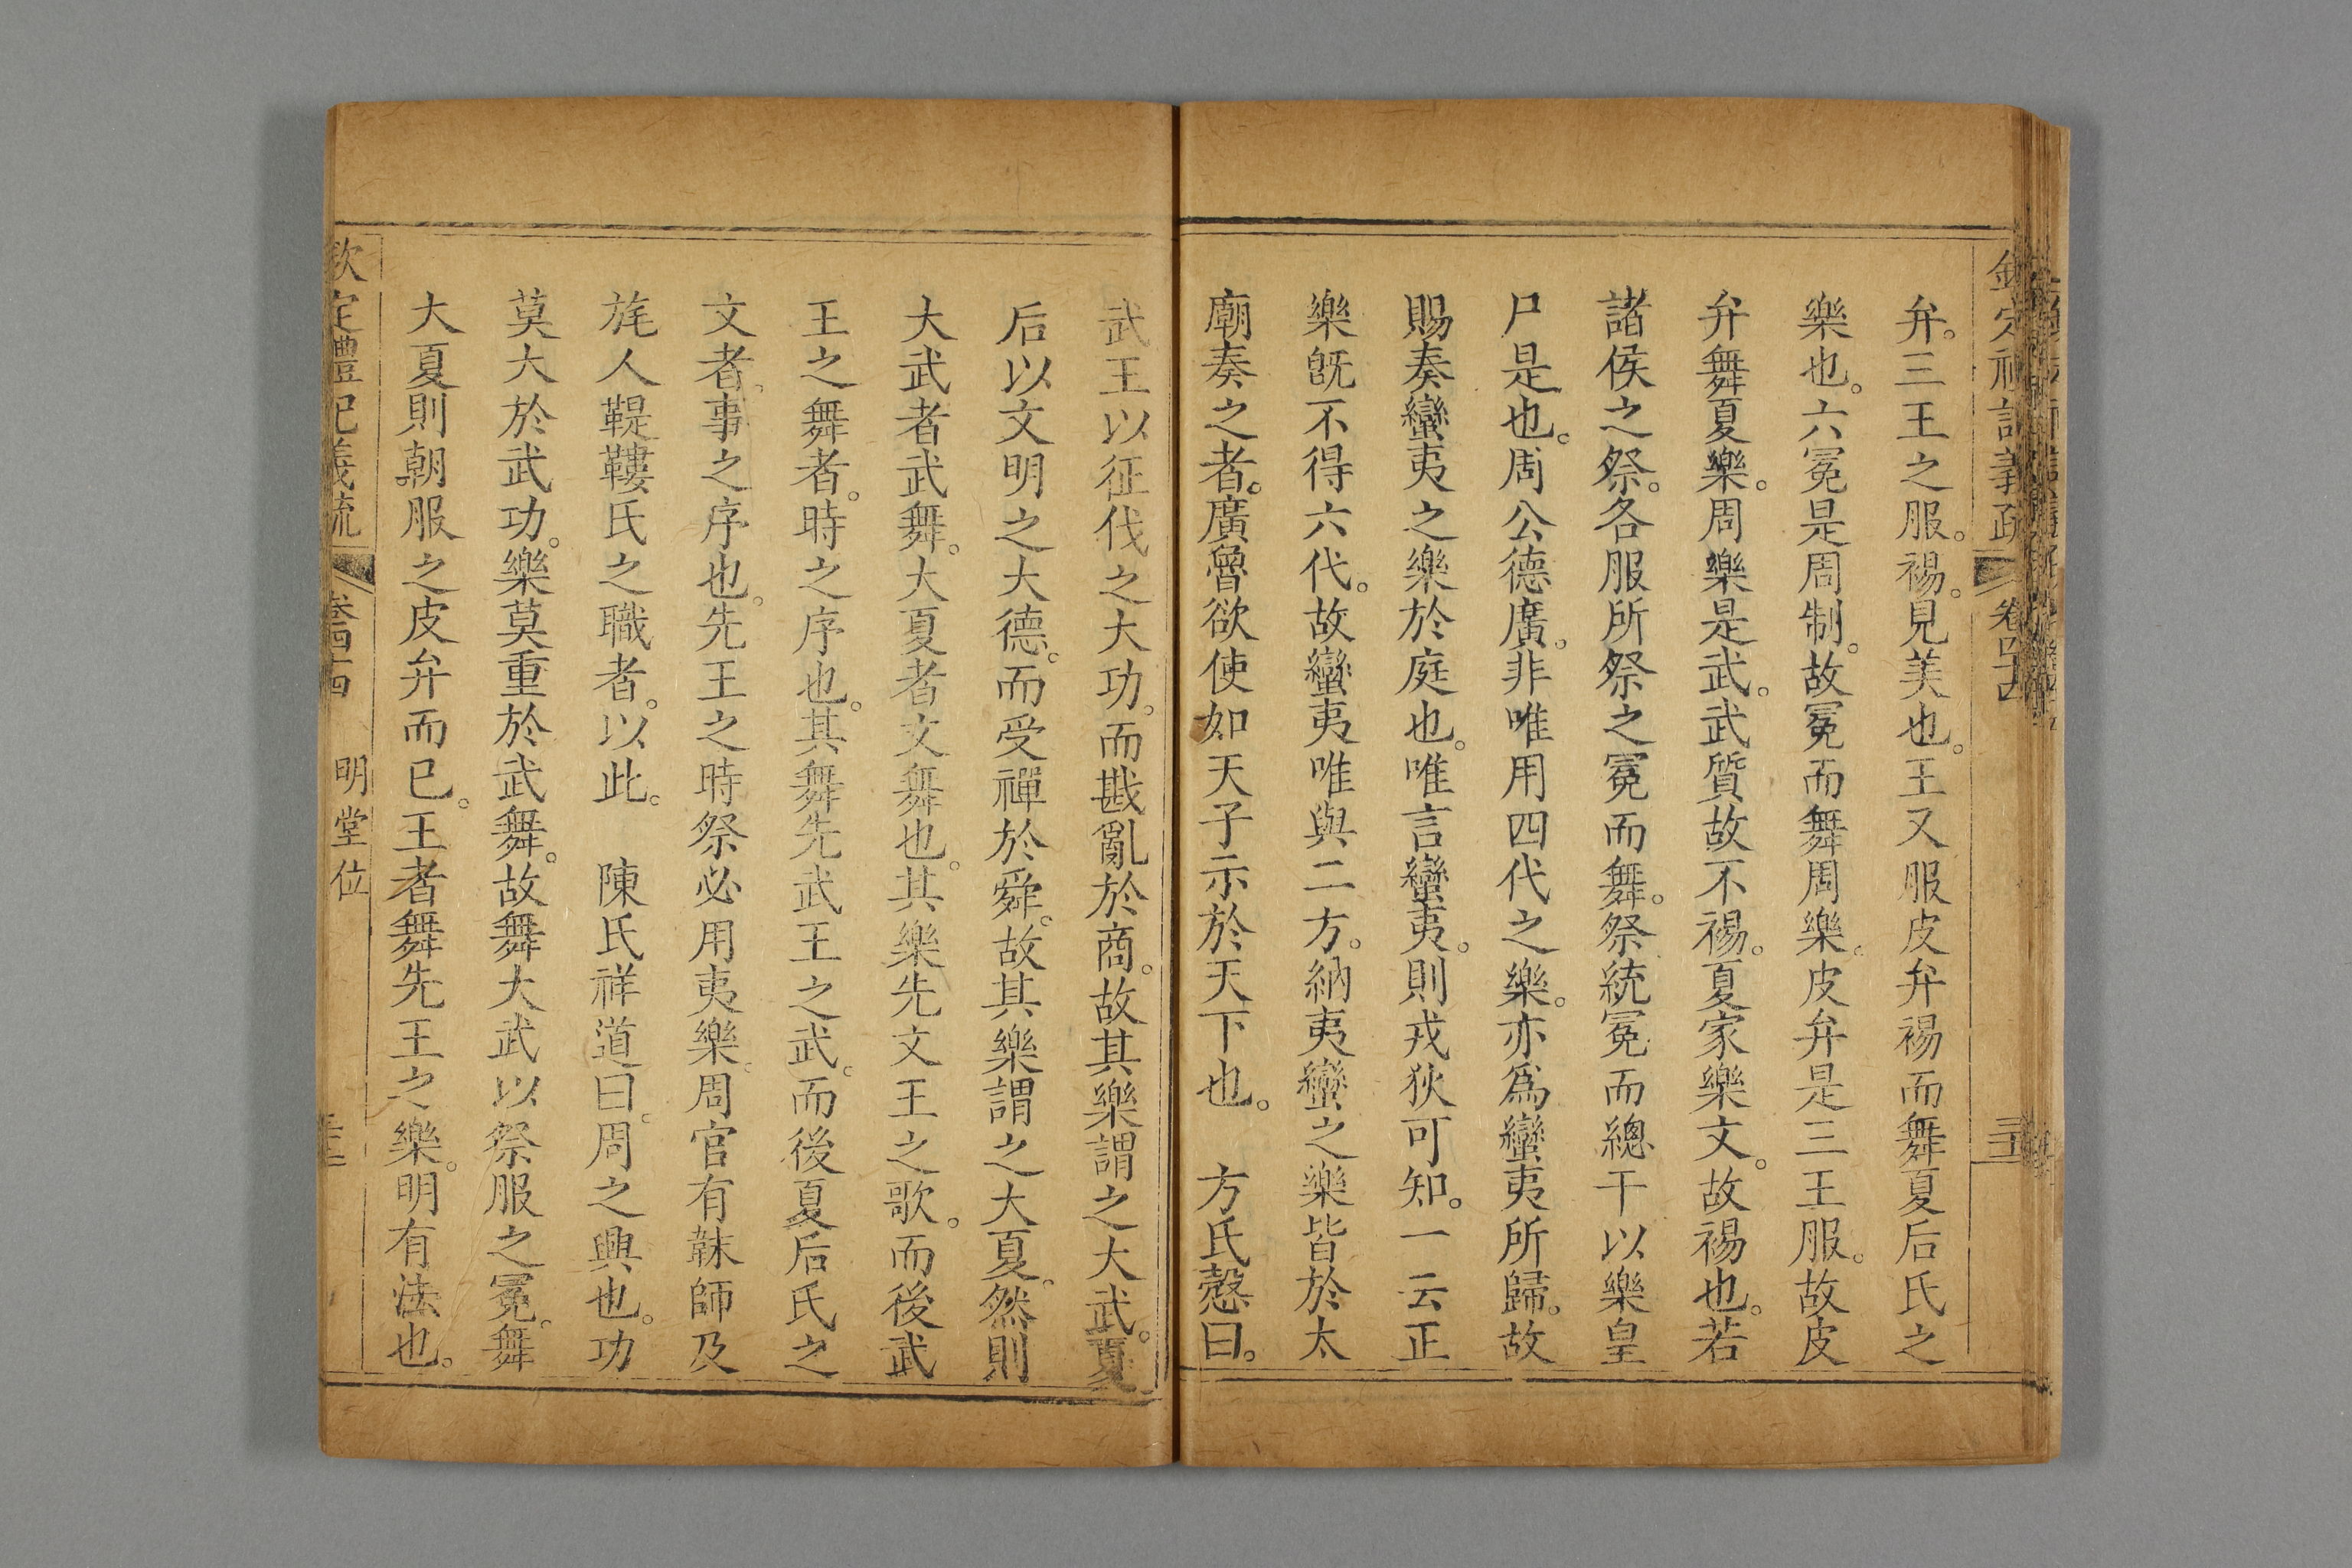 欽定禮記義疏 卷四十四
弁。三王之服。裼。見美也。王又服皮弁裼而舞夏后氏之
樂也。六冕是周制。故冕而舞周樂。皮弁是三王服。故皮
弁舞夏樂。周樂是武。武質故不裼。夏家樂文。故裼也。若
諸侯之祭。各服所祭之冕而舞。祭統冕而總干以樂皇
尸是也。周公德廣。非唯用四代之樂。亦為蠻夷所歸。故
賜奏蠻夷之樂於庭也。唯言蠻夷。則戎狄可知。一云正
樂旣不得六代。故蠻夷唯與二方。納夷蠻之樂皆於太
廟奏之者。廣魯欲使如天子示於天下也。 方氏慤曰。
武王以征伐之大功。而戡亂於商。故其樂謂之大武。夏
后以文明之大德。而受禪於舜。故其樂謂之大夏。然則
大武者武舞。大夏者文舞也。其樂先文王之歌。而後武
王之舞者。時之序也。其舞先武王之武。而後夏后氏之
文者。事之序也。先王之時祭必用夷樂。周官有韎師及
旄人鞮鞻氏之職者。以此。 陳氏祥道曰。周之興也。功
莫大於武功。樂莫重於武舞。故舞大武以祭服之冕。舞
大夏則朝服之皮弁而已。王者舞先王之樂。明有法也。
欽定禮記義疏 卷四十四 明堂位